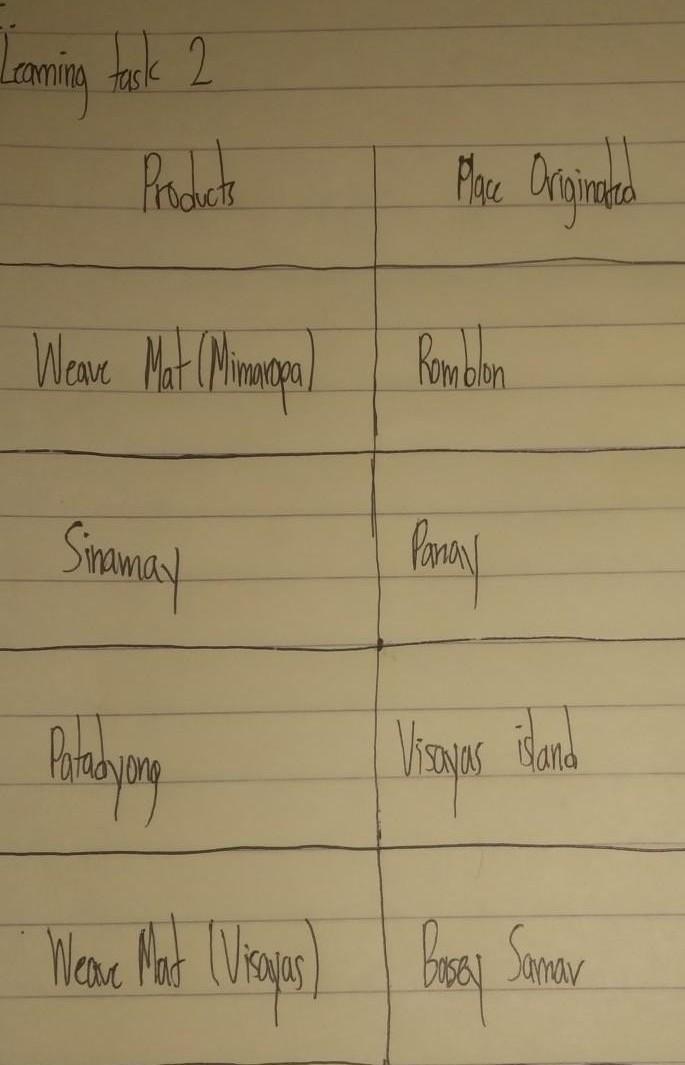 Learning task 2
Products Place Originated
Weave Mat (Mimaropa) Romblon
Sinamay Panay
Patadyong Visayas island
Weave Mat (Visayas) Basey Samar